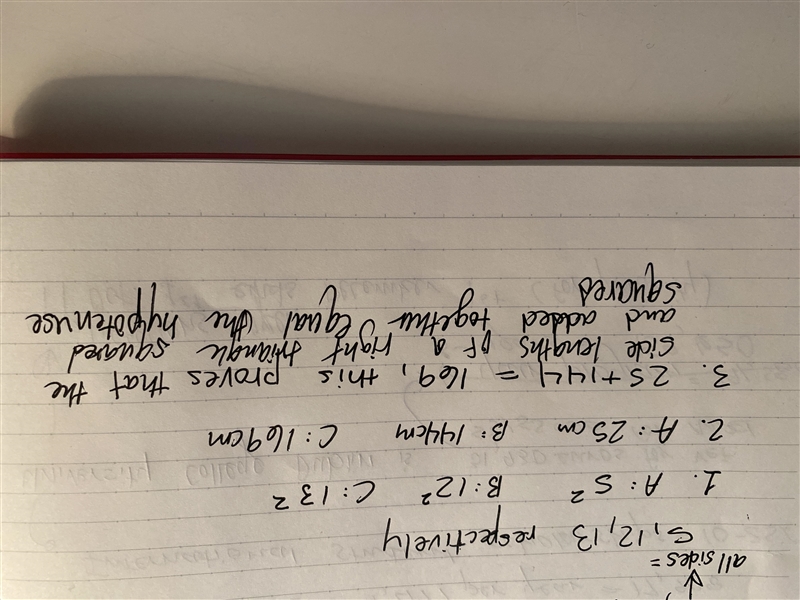 all sides =
5, 12, 13 respectively
1. A: 5² B: 12² C: 13²
2. A: 25cm B: 144cm C: 169cm
3. 25+144 = 169, this proves that the
side lengths of a right triangle squared
and added together equal the hypotenuse
squared